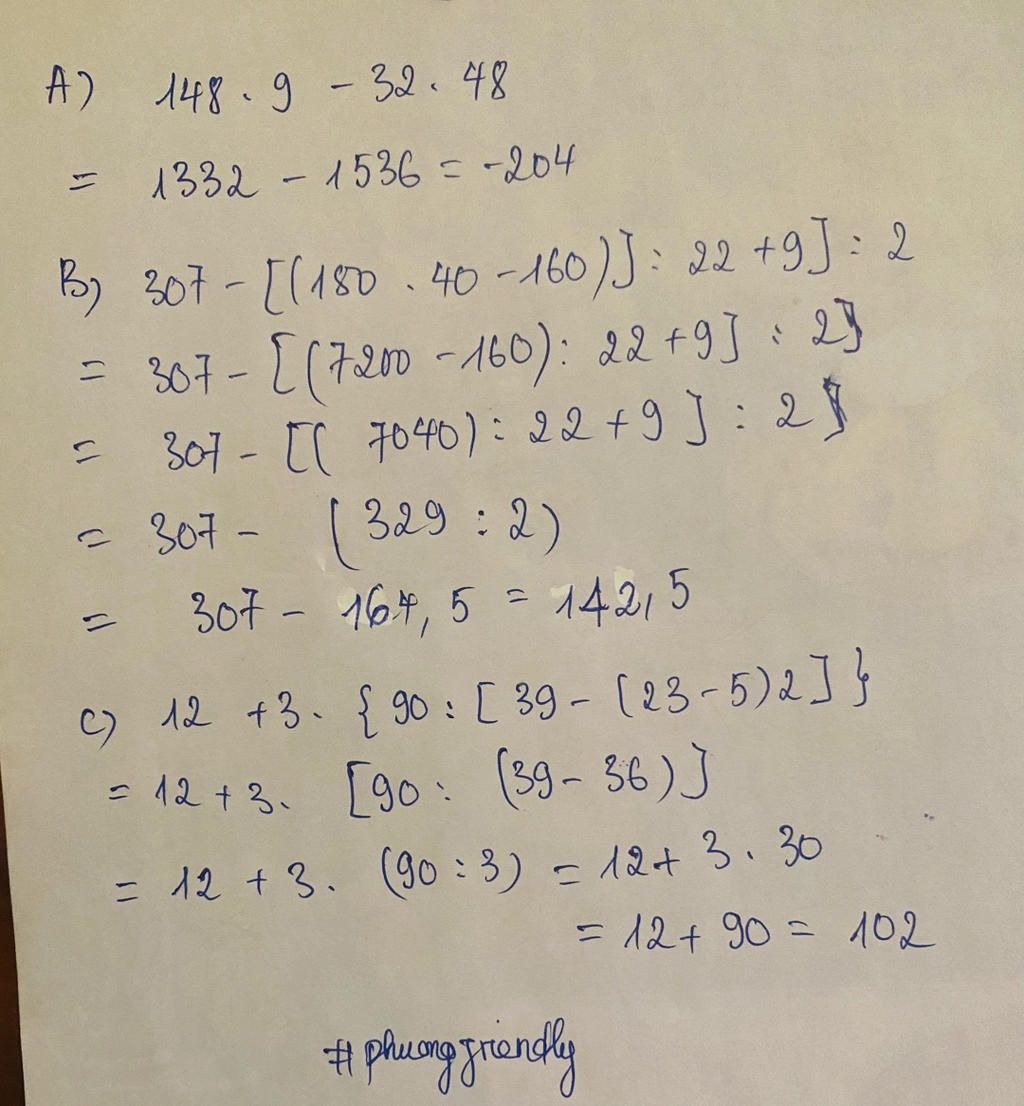 A) 148 . 9 - 32 . 48
= 1332 - 1536 = -204
B) 307 - [(180 . 40 - 160)] : 22 + 9] : 2
= 307 - [(7200 - 160) : 22 + 9] : 2}
= 307 - [( 7040) : 22 + 9 ] : 2}
= 307 - (329 : 2)
= 307 - 164,5 = 142,5
C) 12 + 3. {90 : [39 - (23 - 5)2]}
= 12 + 3. [90 : (39 - 36)]
= 12 + 3. (90 : 3) = 12 + 3 . 30
= 12 + 90 = 102
#phuongfriendly